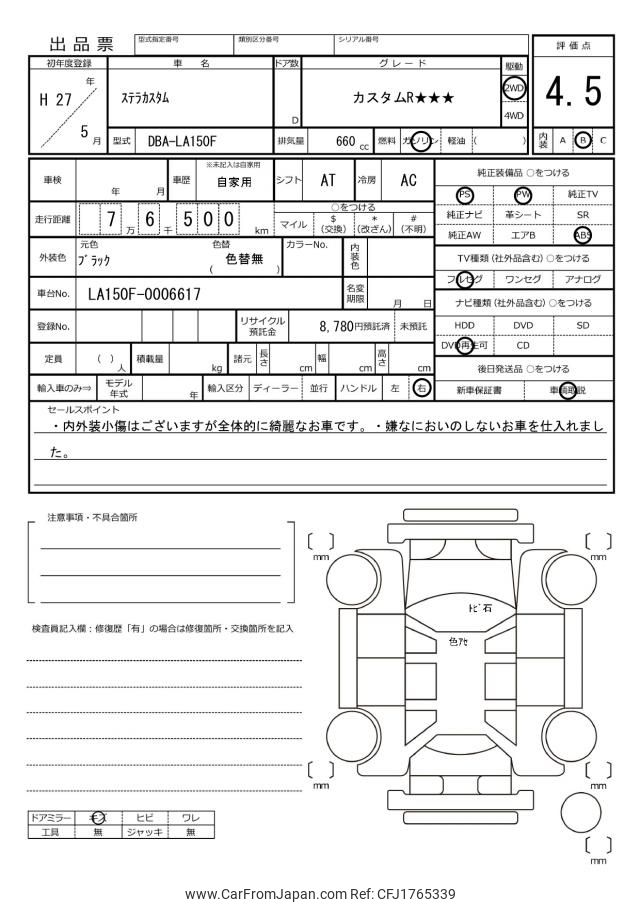 出品票
型式指定番号 類別区分番号 シリアル番号
評価点
4.5
初年度登録 車名 ドア数 グレード 駆動
H 27 年 5 月
ステラカスタム
D
カスタムR★★★
2WD
4WD
型式 DBA-LA150F 排気量 660 cc 燃料 ガソリン 軽油 ( )
内装 A B C
車検 年 月 車歴 ※未記入は自家用 自家用 シフト AT 冷房 AC
純正装備品 ○をつける
PS PW 純正TV
走行距離 7 6 万 5 千 0 0 km
○をつける
マイル $(交換) *(改ざん) #(不明)
純正ナビ 革シート SR
純正AW エアB ABS
外装色 元色 ブラック 色替 ( 色替無 ) カラーNo. 内装色
TV種類 (社外品含む) ○をつける
フルセグ ワンセグ アナログ
車台No. LA150F-0006617 名変期限 月 日
ナビ種類 (社外品含む) ○をつける
登録No. リサイクル預託金 8,780円預託済 未預託
HDD DVD SD
DVD再生可 CD
定員 ( ) 人 積載量 kg 諸元 長さ cm 幅 cm 高さ cm
後日発送品 ○をつける
輸入車のみ⇒ モデル年式 年 輸入区分 ディーラー 並行 ハンドル 左 右
新車保証書 車輌取説
セールスポイント
・内外装小傷はございますが全体的に綺麗なお車です。・嫌なにおいのしないお車を仕入れまし
た。
注意事項・不具合箇所
mm
mm
トビ石
検査員記入欄:修復歴「有」の場合は修復箇所・交換箇所を記入
色アセ
mm
mm
ドアミラー キズ ヒビ ワレ
工具 無 ジャッキ 無
mm
www.CarFromJapan.com Ref: CFJ1765339